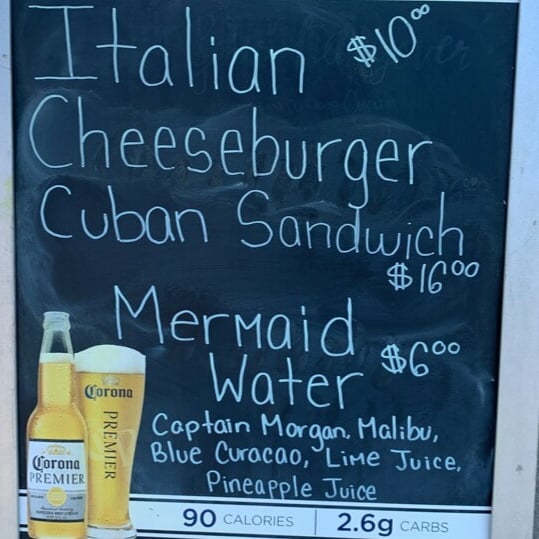 Italian $10⁰⁰
Cheeseburger
Cuban Sandwich
$16⁰⁰
Mermaid
Water $6⁰⁰
Captain Morgan, Malibu,
Blue Curacao, Lime Juice,
Pineapple Juice
Corona
PREMIER
Corona
PREMIER
90 CALORIES | 2.6g CARBS